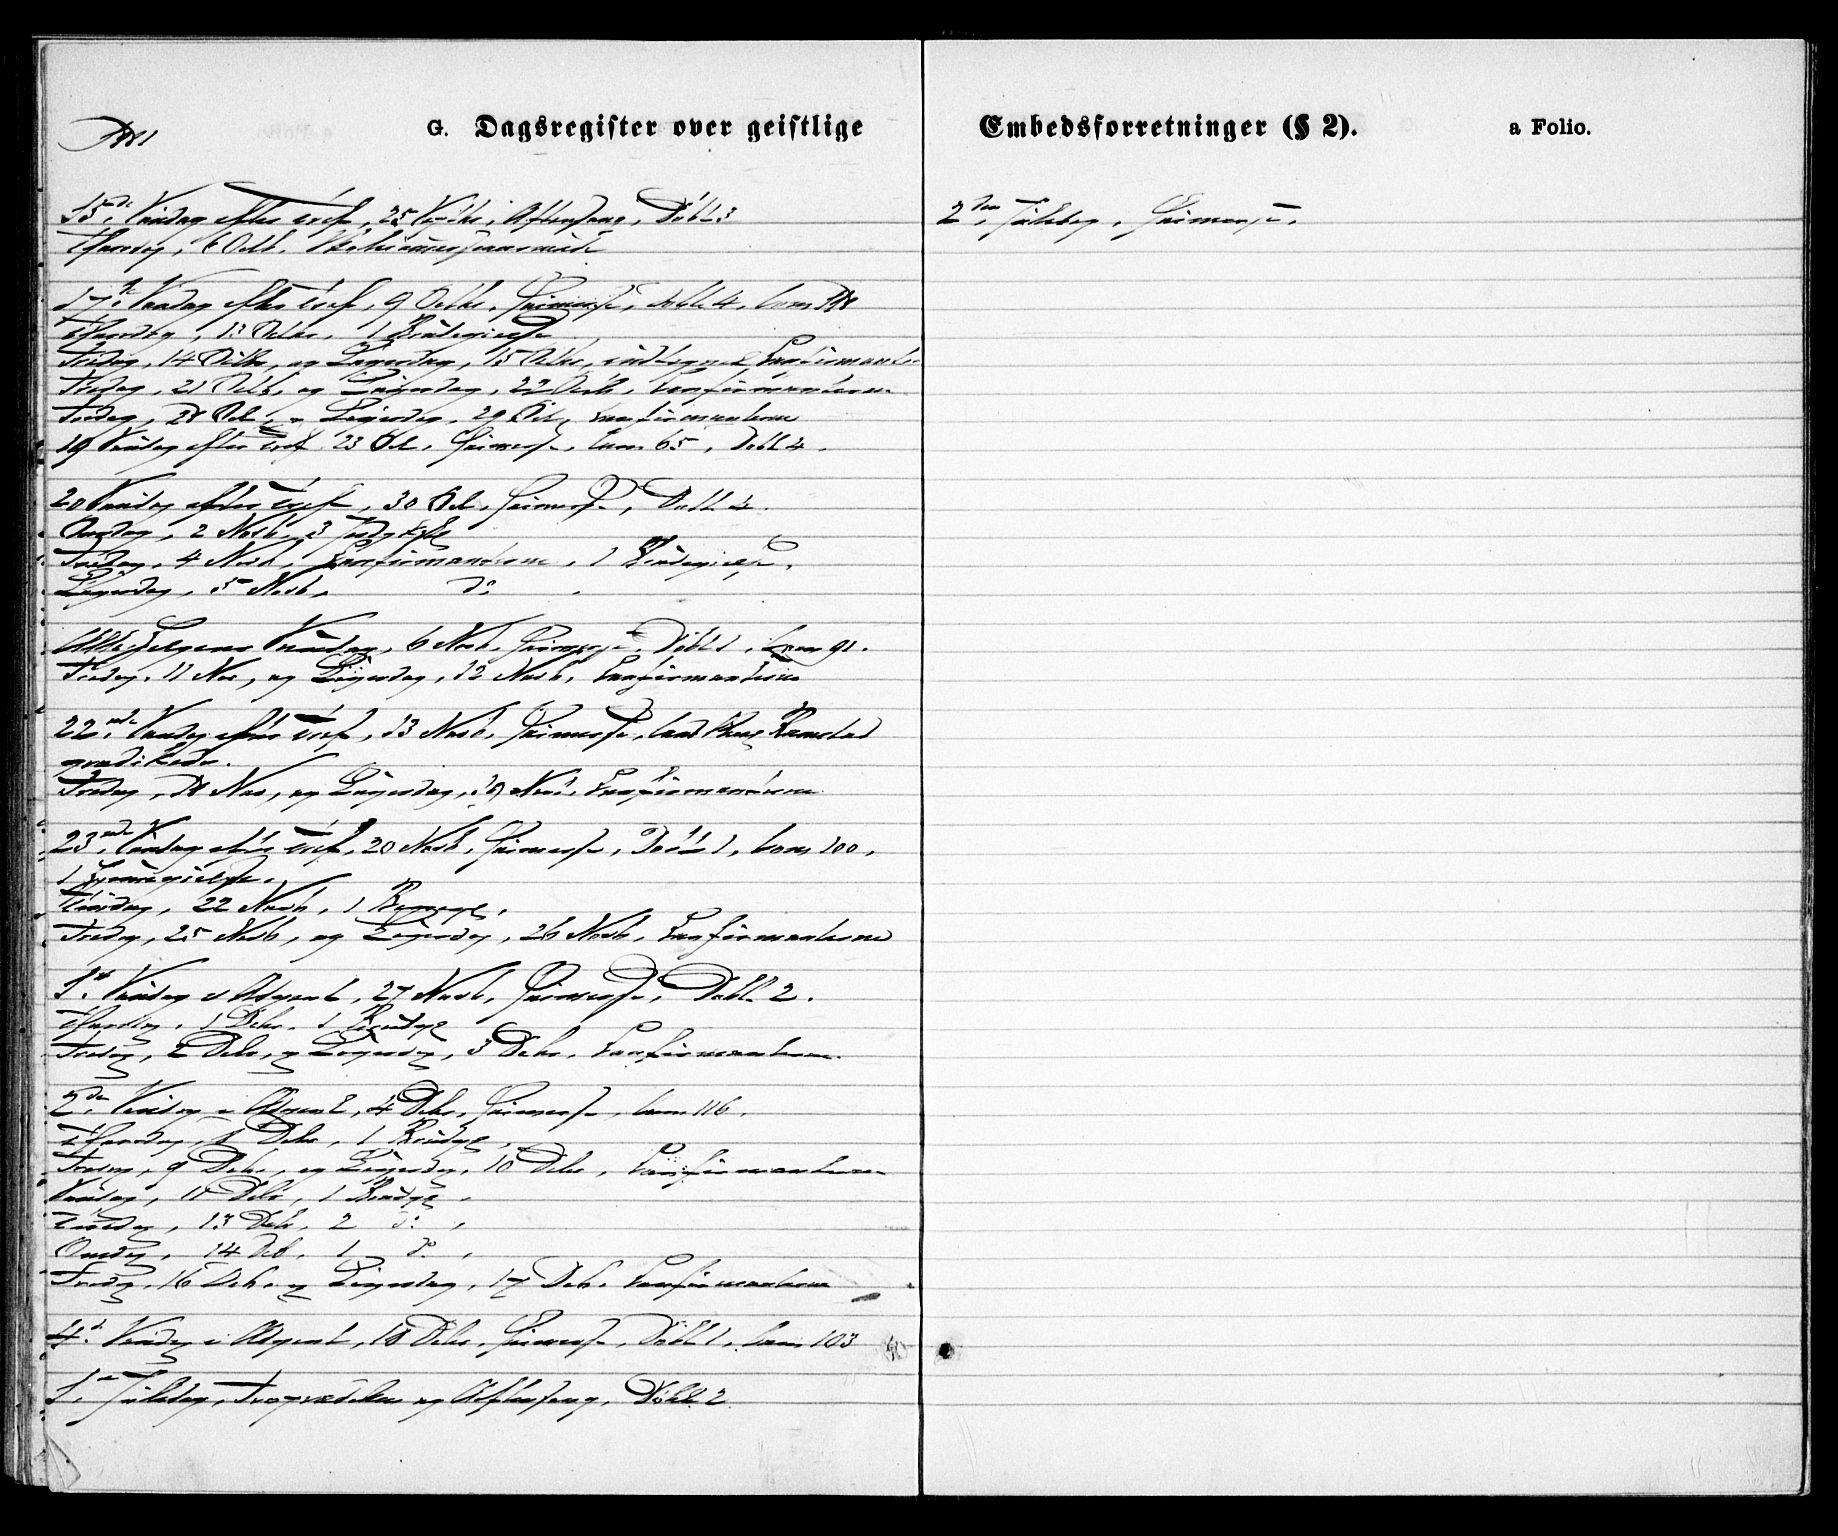 1881
G. Dagsregister over geistlige
Embedsforretninger (§ 2).
a Folio.
15de Søndag efter Tref., 25 Septbr., Aftensang, Døbt 3
Thorsdag, 6 Octb.
17de Søndag efter Tref., 9 Octbr., Høimesse, Døbt 4, Com 78
Thorsdag, 13 Octbr., 1
Fredag, 14 Octbr., og Løgerdag, 15 Octbr., Confirmanter
Fredag, 21 Octb., og Løgerdag, 22 Octb., Confirmanterne
Fredag, 28 Oct., og Løgerdag, 29 Oct., Confirmanterne
19 Søndag efter Tref. 23 Oct., Høimesse, Com 65, Døbt 4.
20 Søndag efter Tref., 30 Oct., Høimesse, Døbt 4.
Onsdag, 2 Novb., 3
Fredag, 4 Novb., Confirmanterne, 1
Løgerdag, 5 Novb., do
Allehelgens Søndag, 6 Novb., Høimesse, Døbt 1, Com 91.
Fredag, 11 Nov., og Løgerdag, 12 Novb., Confirmanterne
22nde Søndag efter Tref., 13 Novb., Høimesse, Ramstad
prædikede.
Fredag, 18 Nov., og Løgerdag, 19 Nov., Confirmanterne
23nde Søndag efter Tref., 20 Novb., Høimesse, Døbt 1, Com 100,
1
Tirsdag, 22 Novb., 1
Fredag, 25 Novb., og Løgerdag, 26 Novb., Confirmanterne
1ste Søndag i Advent, 27 Novb., Høimesse, Døbt 2.
Thorsdag, 1 Debr., 1
Fredag, 2 Debr., og Løgerdag, 3 Debr., Confirmanterne
2den Søndag i Advent, 4 Debr., Høimesse, Com 116.
Thorsdag, 8 Debr., 1
Fredag, 9 Debr., og Løgerdag, 10 Debr., Confirmanterne
Søndag, 11 Debr., 1
Tirsdag, 13 Debr., 2 do,
Onsdag, 14 Deb., 1 do,
Fredag, 16 Debr. og Løgerdag, 17 Debr. Confirmanterne
4de Søndag i Advent, 18 Debr., Høimesse, Døbt 1, Com 103
1ste Juledag, Froprædiken og Aftensang, Døbt 2
2den Juledag, Høimesse.